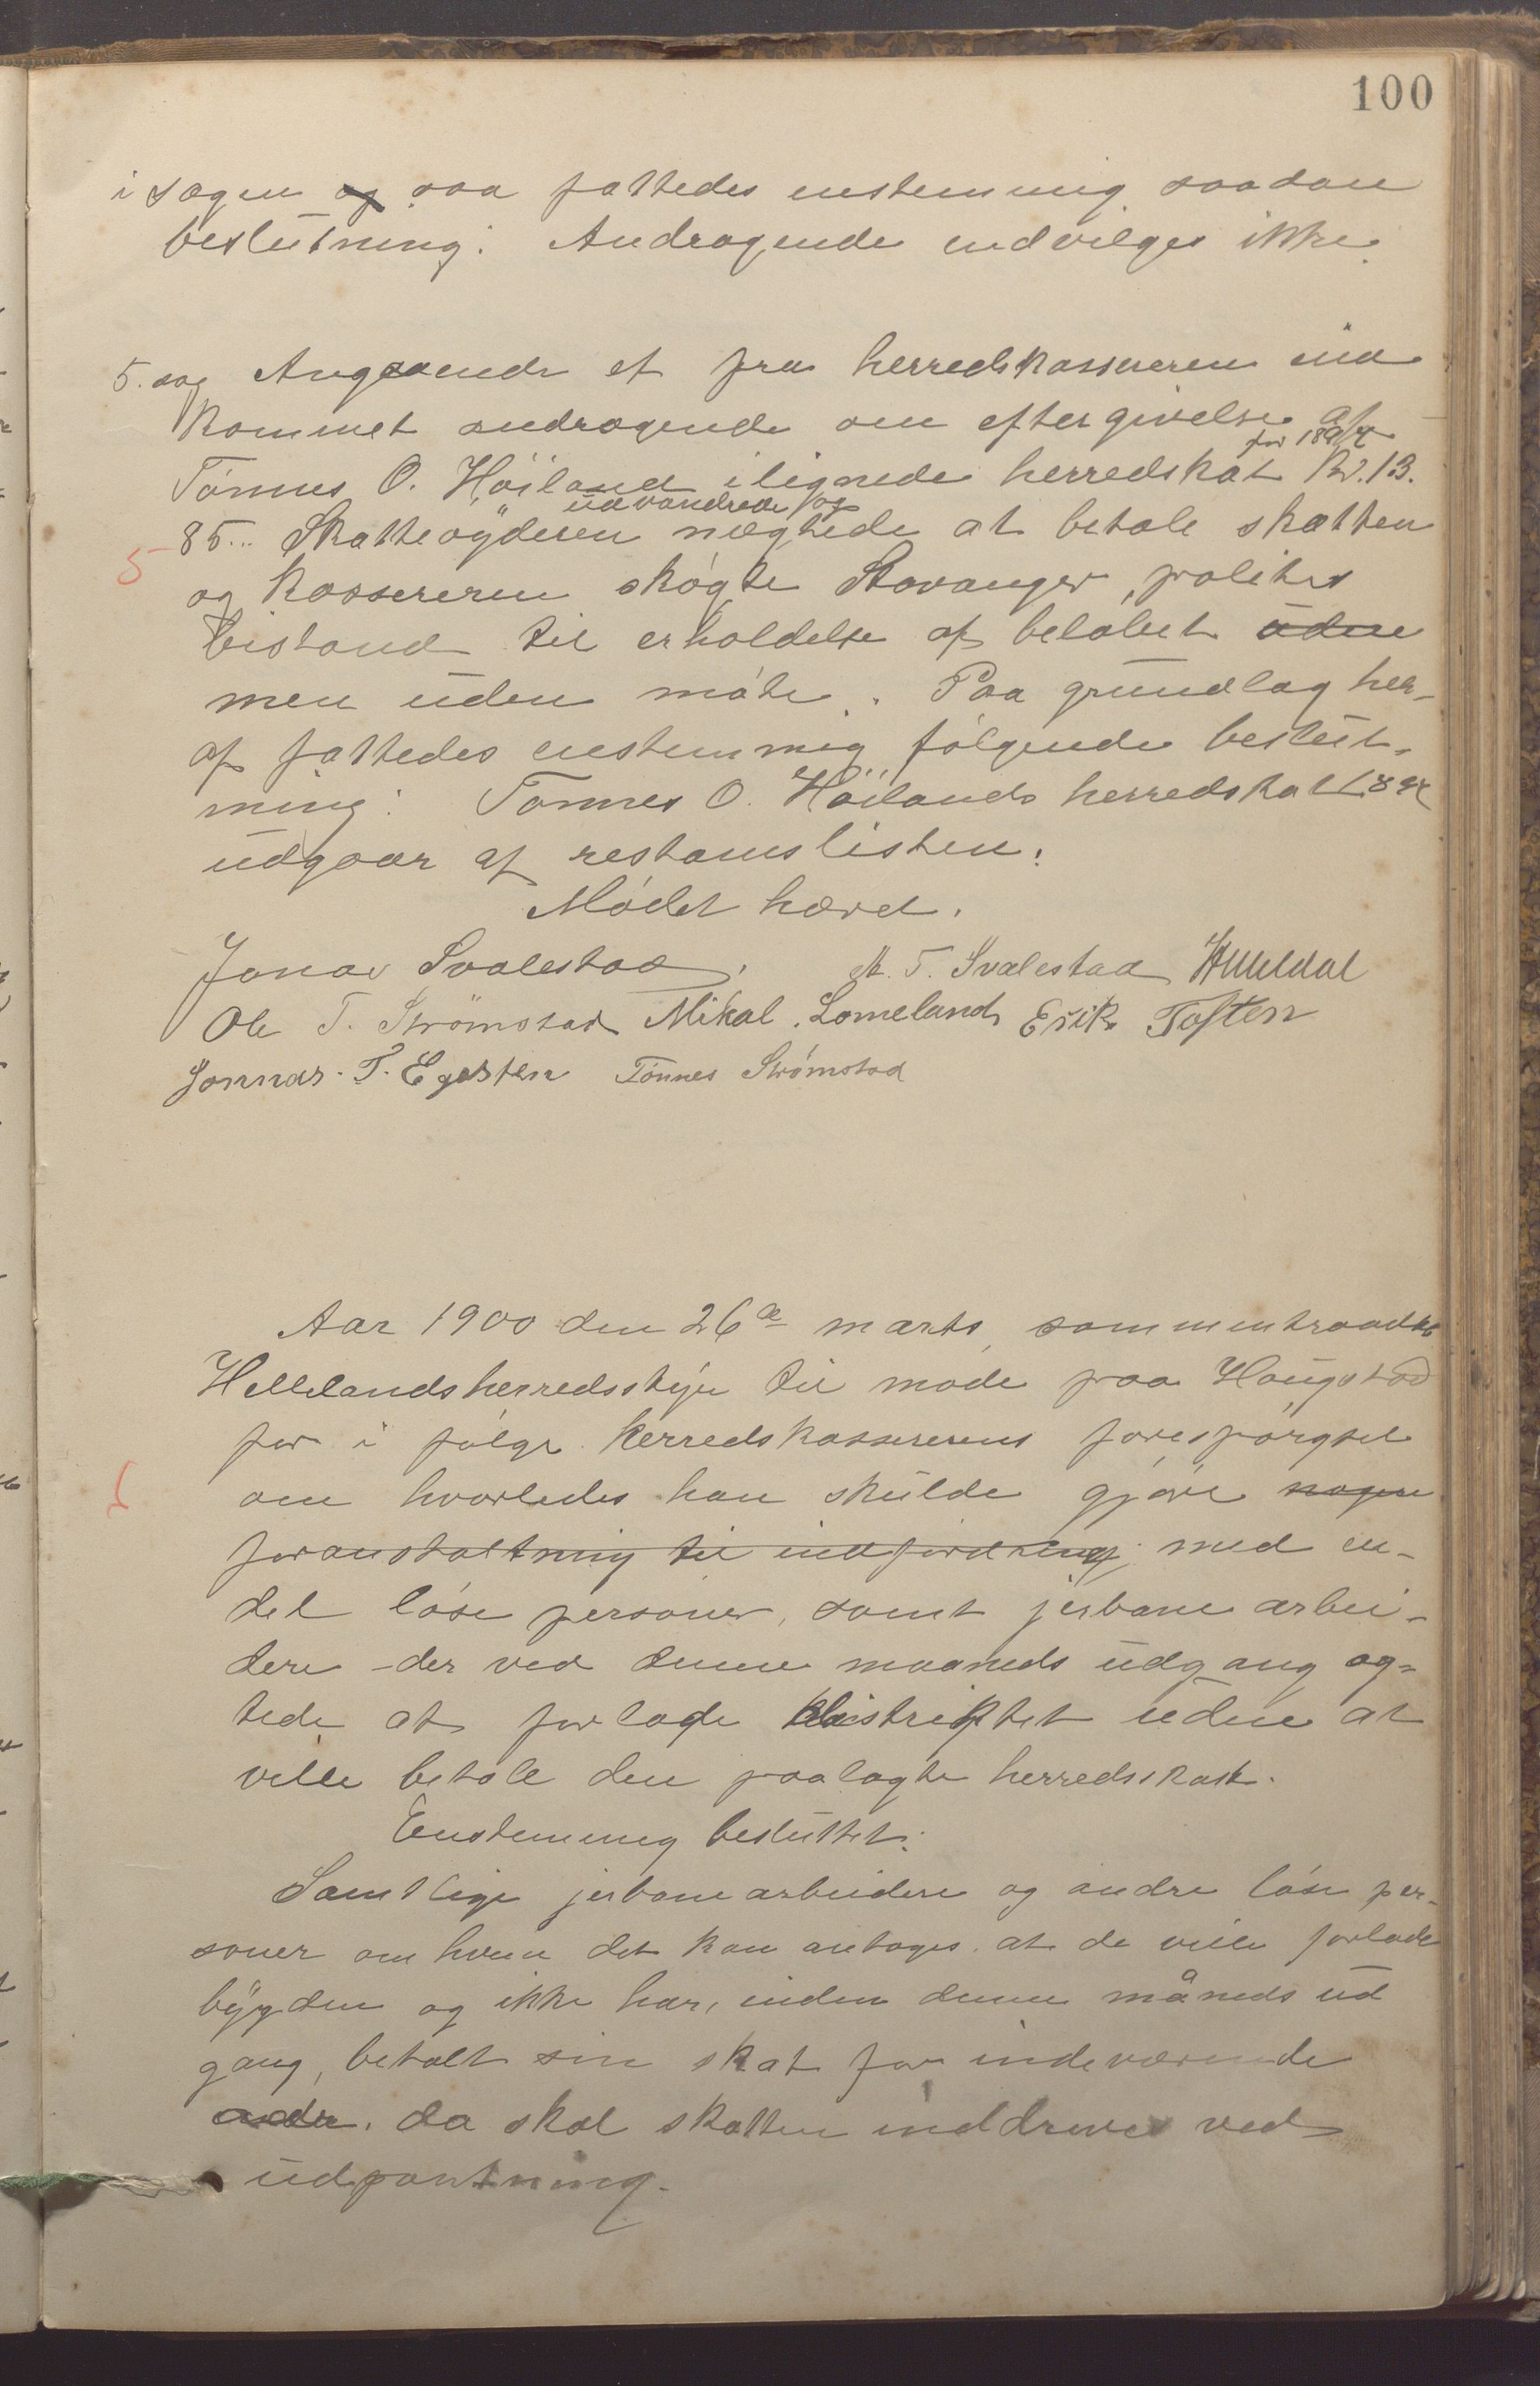 100
i sagen og saa fattedes enstemmig saadan
beslutning: Andragende indvilges ikke.
5. sag Angaaende et fra herredskassereren ind
kommet andragende om eftergivelse af
for 189
Tónnes O. Höiland ilignede herredskat Kr. 13.
udvandrede og
85... Skatteyderen nægtede at betale skatten
5
og kassereren søgte Stavanger politis
bistand til erholdelse af belóbet uden
men uden . Paa grundlag her-
af fattedes enstemmig fölgende beslut-
ning: Tonnes O. Höilands herredskat
udgaar af restanslisten.
Módet hævet.
Jonas Svalestad. M. T. Svalestad
Ole T. Strömstad Mikal Lomeland Erik Toften
Gonnar. T. Egesten Tónnes Strómstad
Aar 1900 den 26de marts sammentraadte
Hellelandsherredsstyre til móde paa Haugstad
for i fólge herredskassererens forespórgsel
om hvorledes han skulde gjóre nogen
foranstaltning til indfordring med en-
6
del lóse personer, samt jerbane arbei-
dere - der ved denne maaneds udgang ag-
tede at forlade distriktet uden at
ville betale den paalagte herredsskat.
Enstemmig besluttet:
Samtlige jerbanearbeidere og andre lóse per-
soner om hvem det kan antages at de ville forlade
bygden og ikke har, inden denne måneds ud
gang, betalt sin skat for indeværende
. da skal skatten inddrives ved
udpantning.